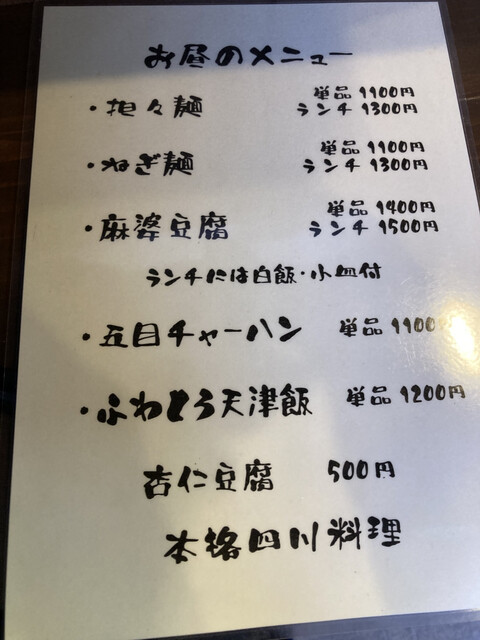 お昼のメニュー
・担々麺 単品 1100円
ランチ 1300円
・ねぎ麺 単品 1100円
ランチ 1300円
・麻婆豆腐 単品 1400円
ランチ 1500円
ランチには白飯・小皿付
・五目チャーハン 単品 1100
・ふわとろ天津飯 単品 1200円
杏仁豆腐 500円
本格四川料理